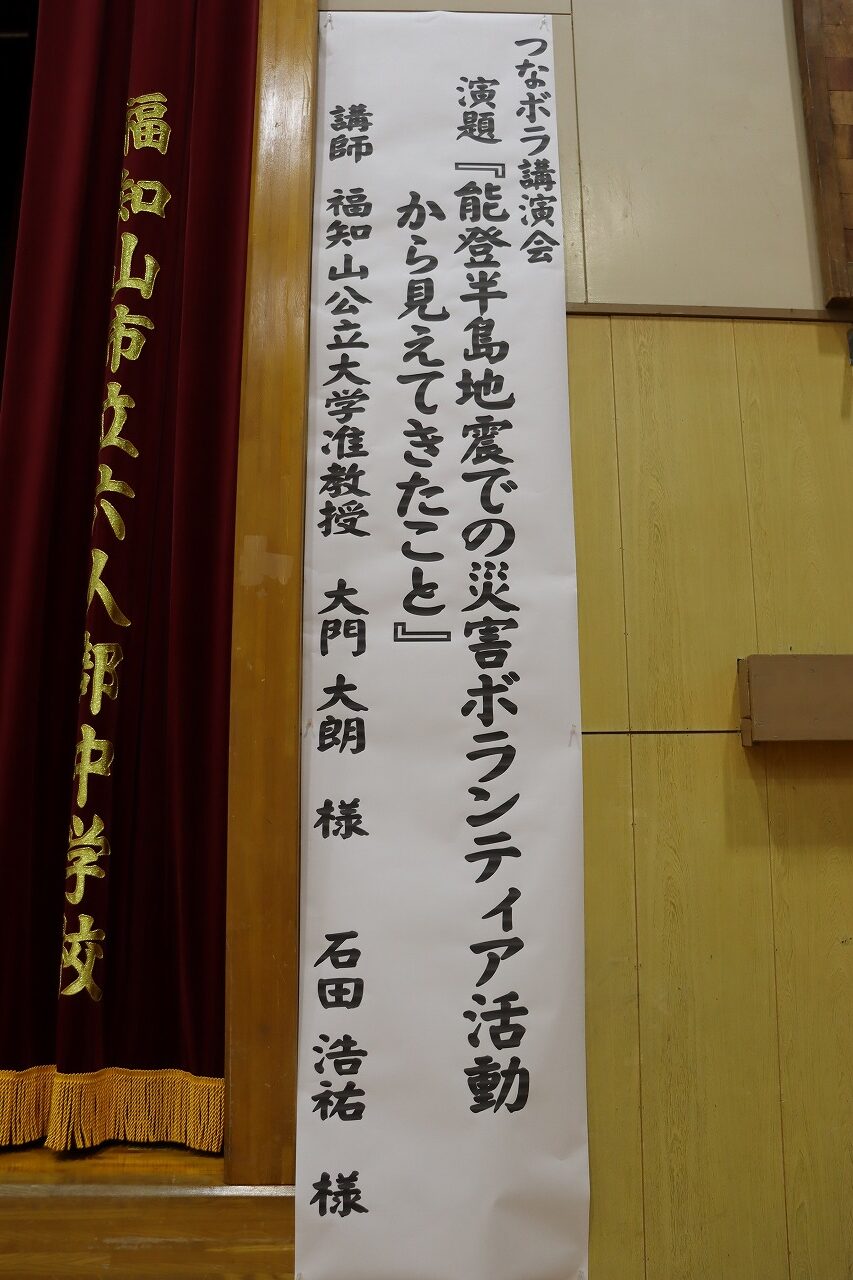 つなボラ講演会
演題『能登半島地震での災害ボランティア活動
から見えてきたこと』
講師 福知山公立大学准教授 大門 大朗 様 石田 浩祐 様
福知山市立六人部中学校